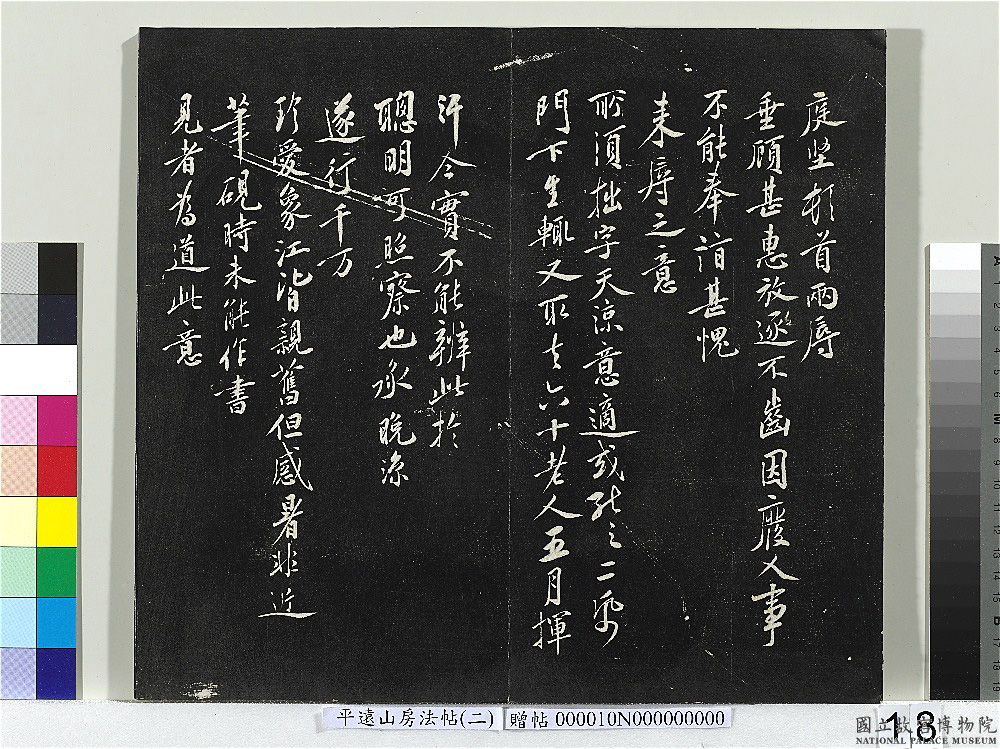 庭堅頓首兩辱
垂顧甚惠放逐不齒因廢人事
不能奉詣甚愧
來辱之意
所須拙字天涼意適或能三二紙
門下生輒又取去六十老人五月揮
汗今實不能辦此於
聰明可照察也承晚涼
遂行千万
珍愛象江皆親舊但盛暑非近
筆硯時未能作書
見者為道此意
平遠山房法帖(二)
贈帖 000010N000000000
18
國立故宮博物院
NATIONAL PALACE MUSEUM